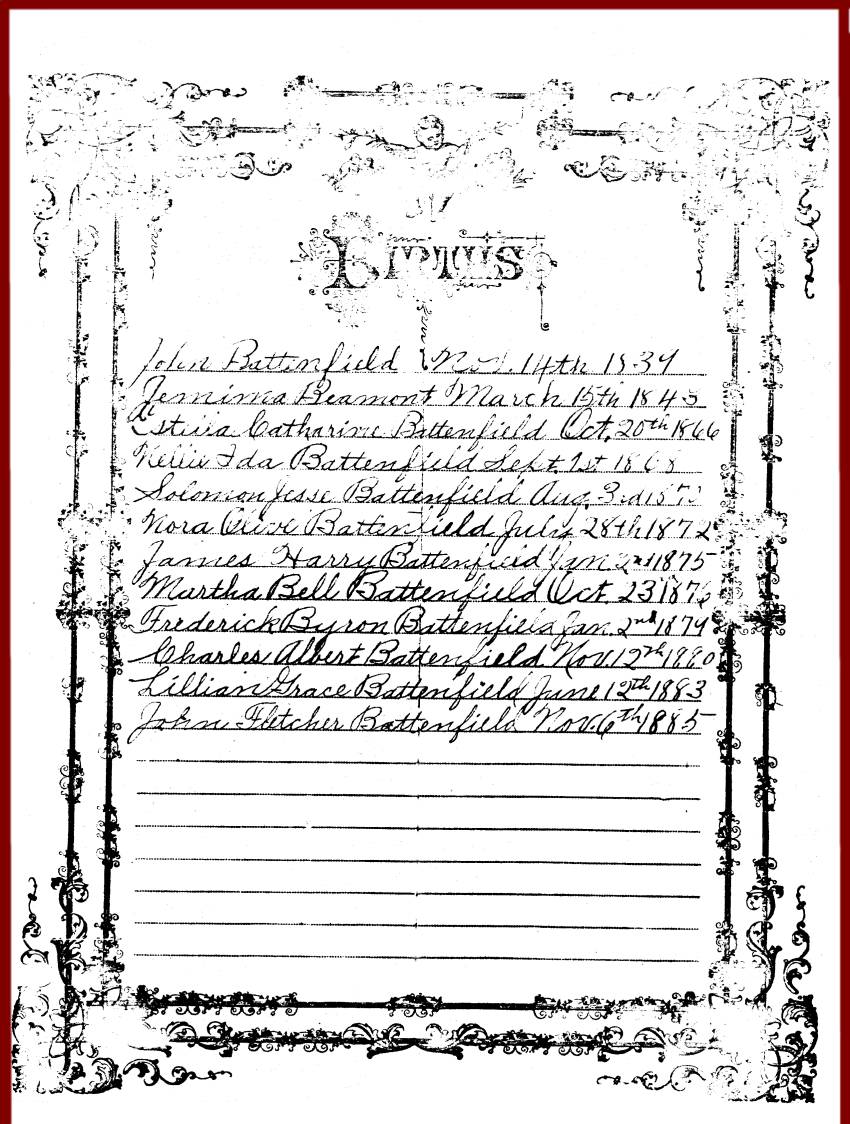 BIRTHS
John Battenfield Nov. 14th 1839
Jemima Beamont March 15th 1843
Catharine Battenfield Oct. 20th 1866
Nellie Ida Battenfield Sept. 1st 1868
Solomon Jesse Battenfield Aug. 3rd
Nora Olive Battenfield July 28th 1872
James Harry Battenfield Jan 2nd 1875
Martha Bell Battenfield Oct. 23 1876
Frederick Byron Battenfield Jan. 2nd 1879
Charles Albert Battenfield Nov. 12th 1880
Lillian Grace Battenfield June 12th 1883
John Fletcher Battenfield Nov. 6th 1885